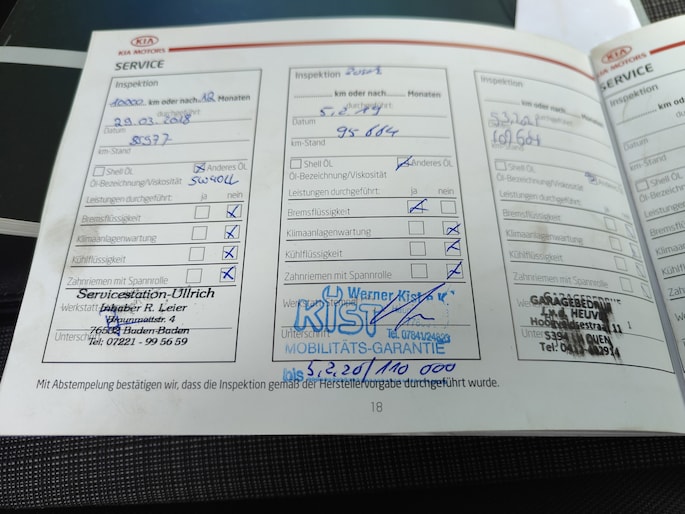 KIA
KIA MOTORS
SERVICE
Inspektion
10000 km oder nach 12 Monaten
durchgeführt:
29.03.2018
Datum
85977
km-Stand
Shell ÖL
Anderes ÖL
Öl-Bezeichnung/Viskosität 5W40LL
Leistungen durchgeführt: ja nein
Bremsflüssigkeit
Klimaanlagenwartung
Kühlflüssigkeit
Zahnriemen mit Spannrolle
Servicestation-Ullrich
Inhaber R. Leier
Braunmattstr. 4
Baden-Baden
Tel: 07221 - 99 56 59
Unterschrift
Inspektion
km oder nach Monaten
durchgeführt:
5.2.19
Datum
95 664
km-Stand
Shell ÖL
Anderes ÖL
Öl-Bezeichnung/Viskosität
Leistungen durchgeführt: ja nein
Bremsflüssigkeit
Klimaanlagenwartung
Kühlflüssigkeit
Zahnriemen mit Spannrolle
Werner Kist
KIST
Tel. 07841/24823
Unterschrift
MOBILITÄTS-GARANTIE
bis 5.2.20/110 000
Inspektion
km oder nach Monaten
durchgeführt:
Datum
km-Stand
Shell ÖL
Anderes ÖL
Öl-Bezeichnung/Viskosität
Leistungen durchgeführt: ja nein
Bremsflüssigkeit
Klimaanlagenwartung
Kühlflüssigkeit
Zahnriemen mit Spannrolle
GARAGEBEDRIJF
J.v.d. HEUVEL
11
Tel:
Mit Abstempelung bestätigen wir, dass die Inspektion gemäß der Herstellervorgabe durchgeführt wurde.
18
KIA
KIA MOTORS
SERVICE
Inspektion
Datum
km-Stand
Shell ÖL